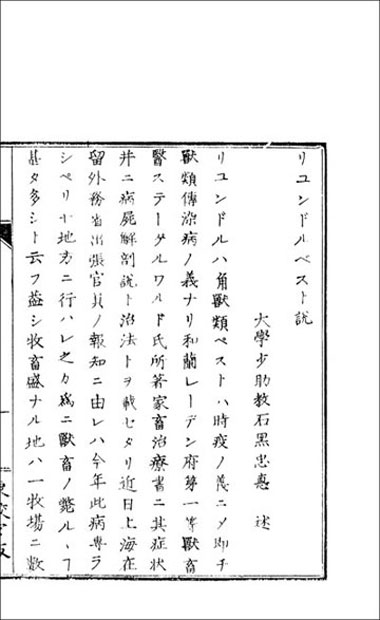 リユンドルペスト説
大學少助教石黒忠悳 述
リユンドルハ角獸類ペストハ時疫ノ義ニメ即チ
獸類傳染病ノ義ナリ和蘭レーデン府第一等獸畜
醫ステーダルワルド氏所著家畜治療書ニ其症状
并ニ病屍解剖説ト治法トヲ載セタリ近日上海在
留外務省出張官員ノ報知ニ由レハ今年此病専ラ
シベリヤ地方ニ行ハレ之カ爲ニ獸畜ノ斃ルヽヿ
甚タ多シト云フ蓋シ牧畜盛ナル地ハ一牧場ニ数